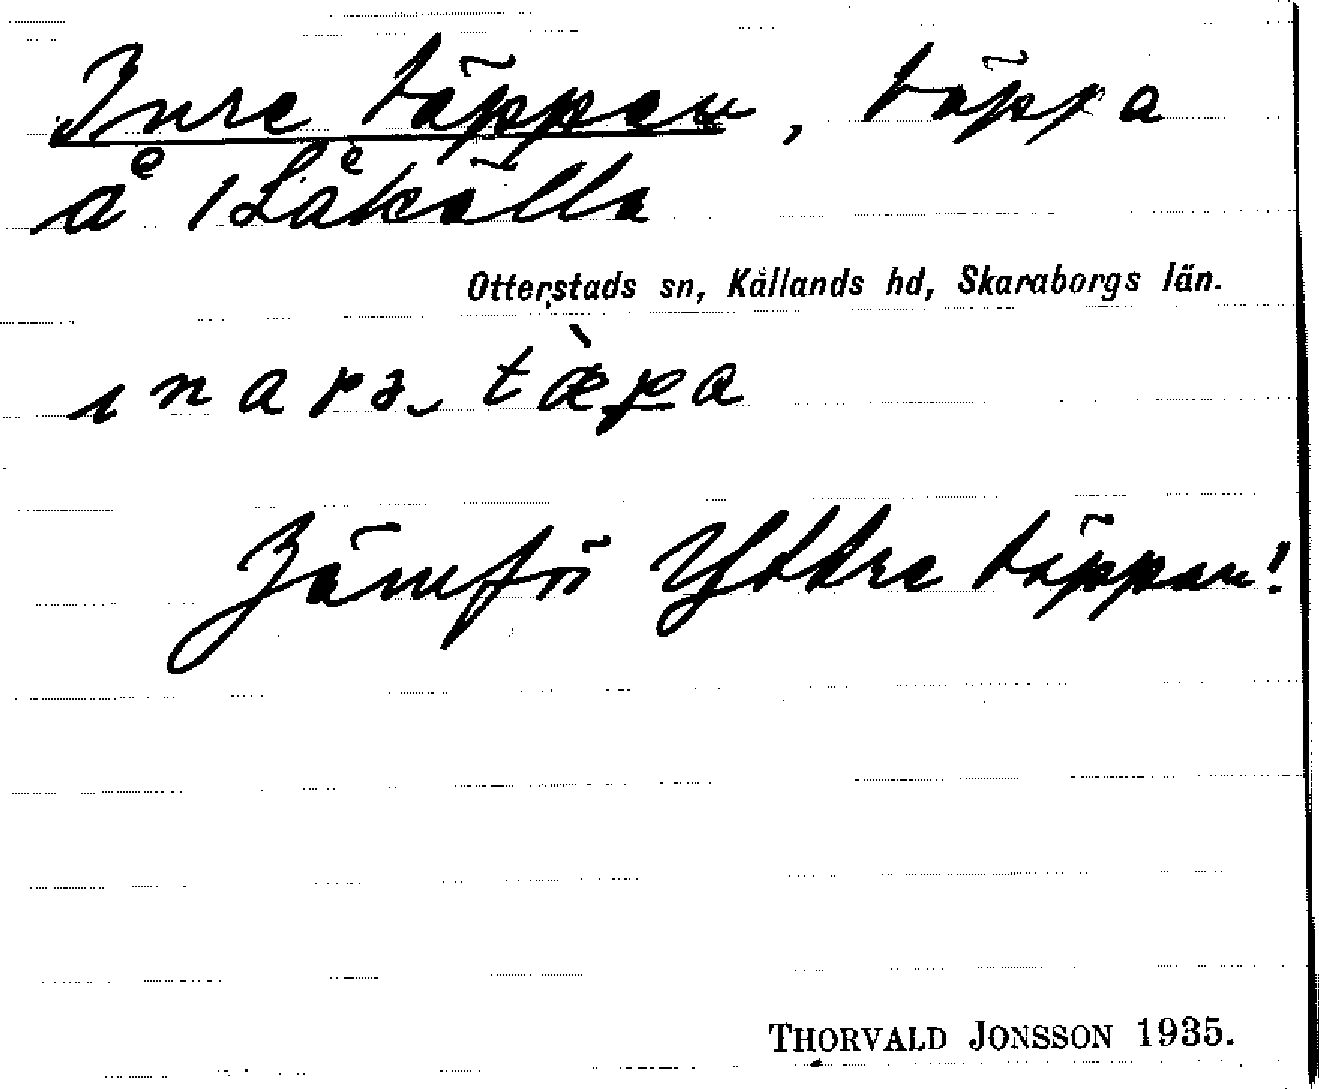 Inre täppan, täppa
å 1 Låkälla
Otterstads sn, Kållands hd, Skaraborgs län.
Jämför Yttre täppan!
THORVALD JONSSON 1935.